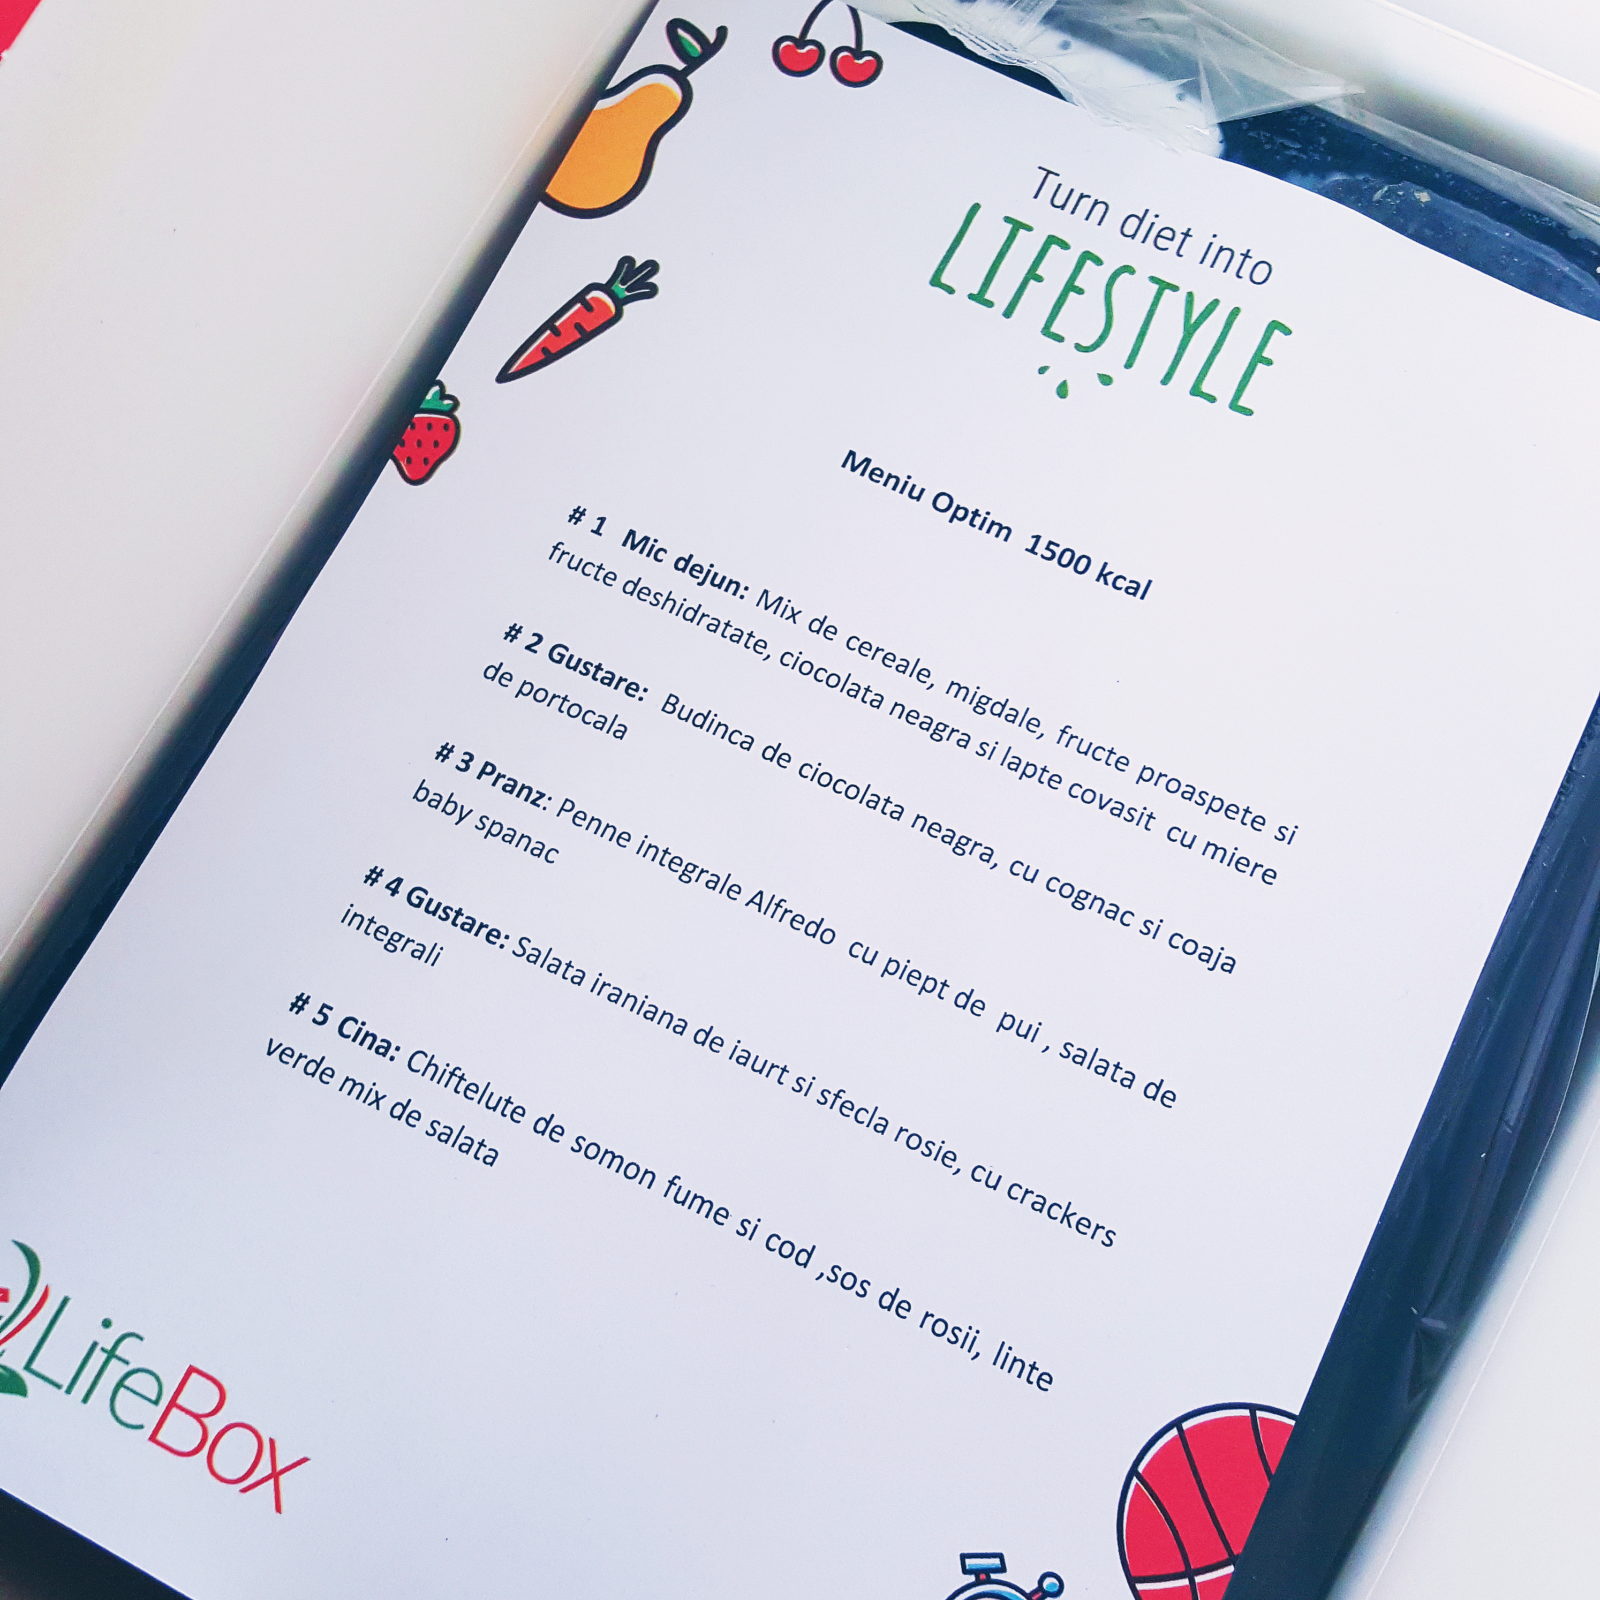 Turn diet into
LIFESTYLE
Meniu Optim 1500 kcal
# 1 Mic dejun: Mix de cereale, migdale, fructe proaspete si
fructe deshidratate, ciocolata neagra si lapte covasit cu miere
# 2 Gustare: Budinca de ciocolata neagra, cu cognac si coaja
de portocala
# 3 Pranz: Penne integrale Alfredo cu piept de pui , salata de
baby spanac
# 4 Gustare: Salata iraniana de iaurt si sfecla rosie, cu crackers
integrali
# 5 Cina: Chiftelute de somon fume si cod ,sos de rosii, linte
verde mix de salata
LifeBox